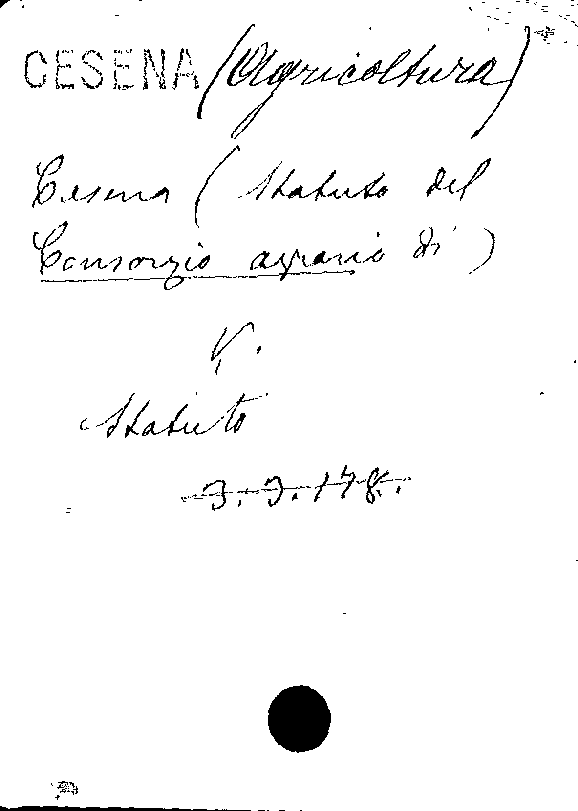 CESENA (Agricoltura)
Cesena (Statuto del
Consorzio agrario di)
V.
Statuto
3.3.178.